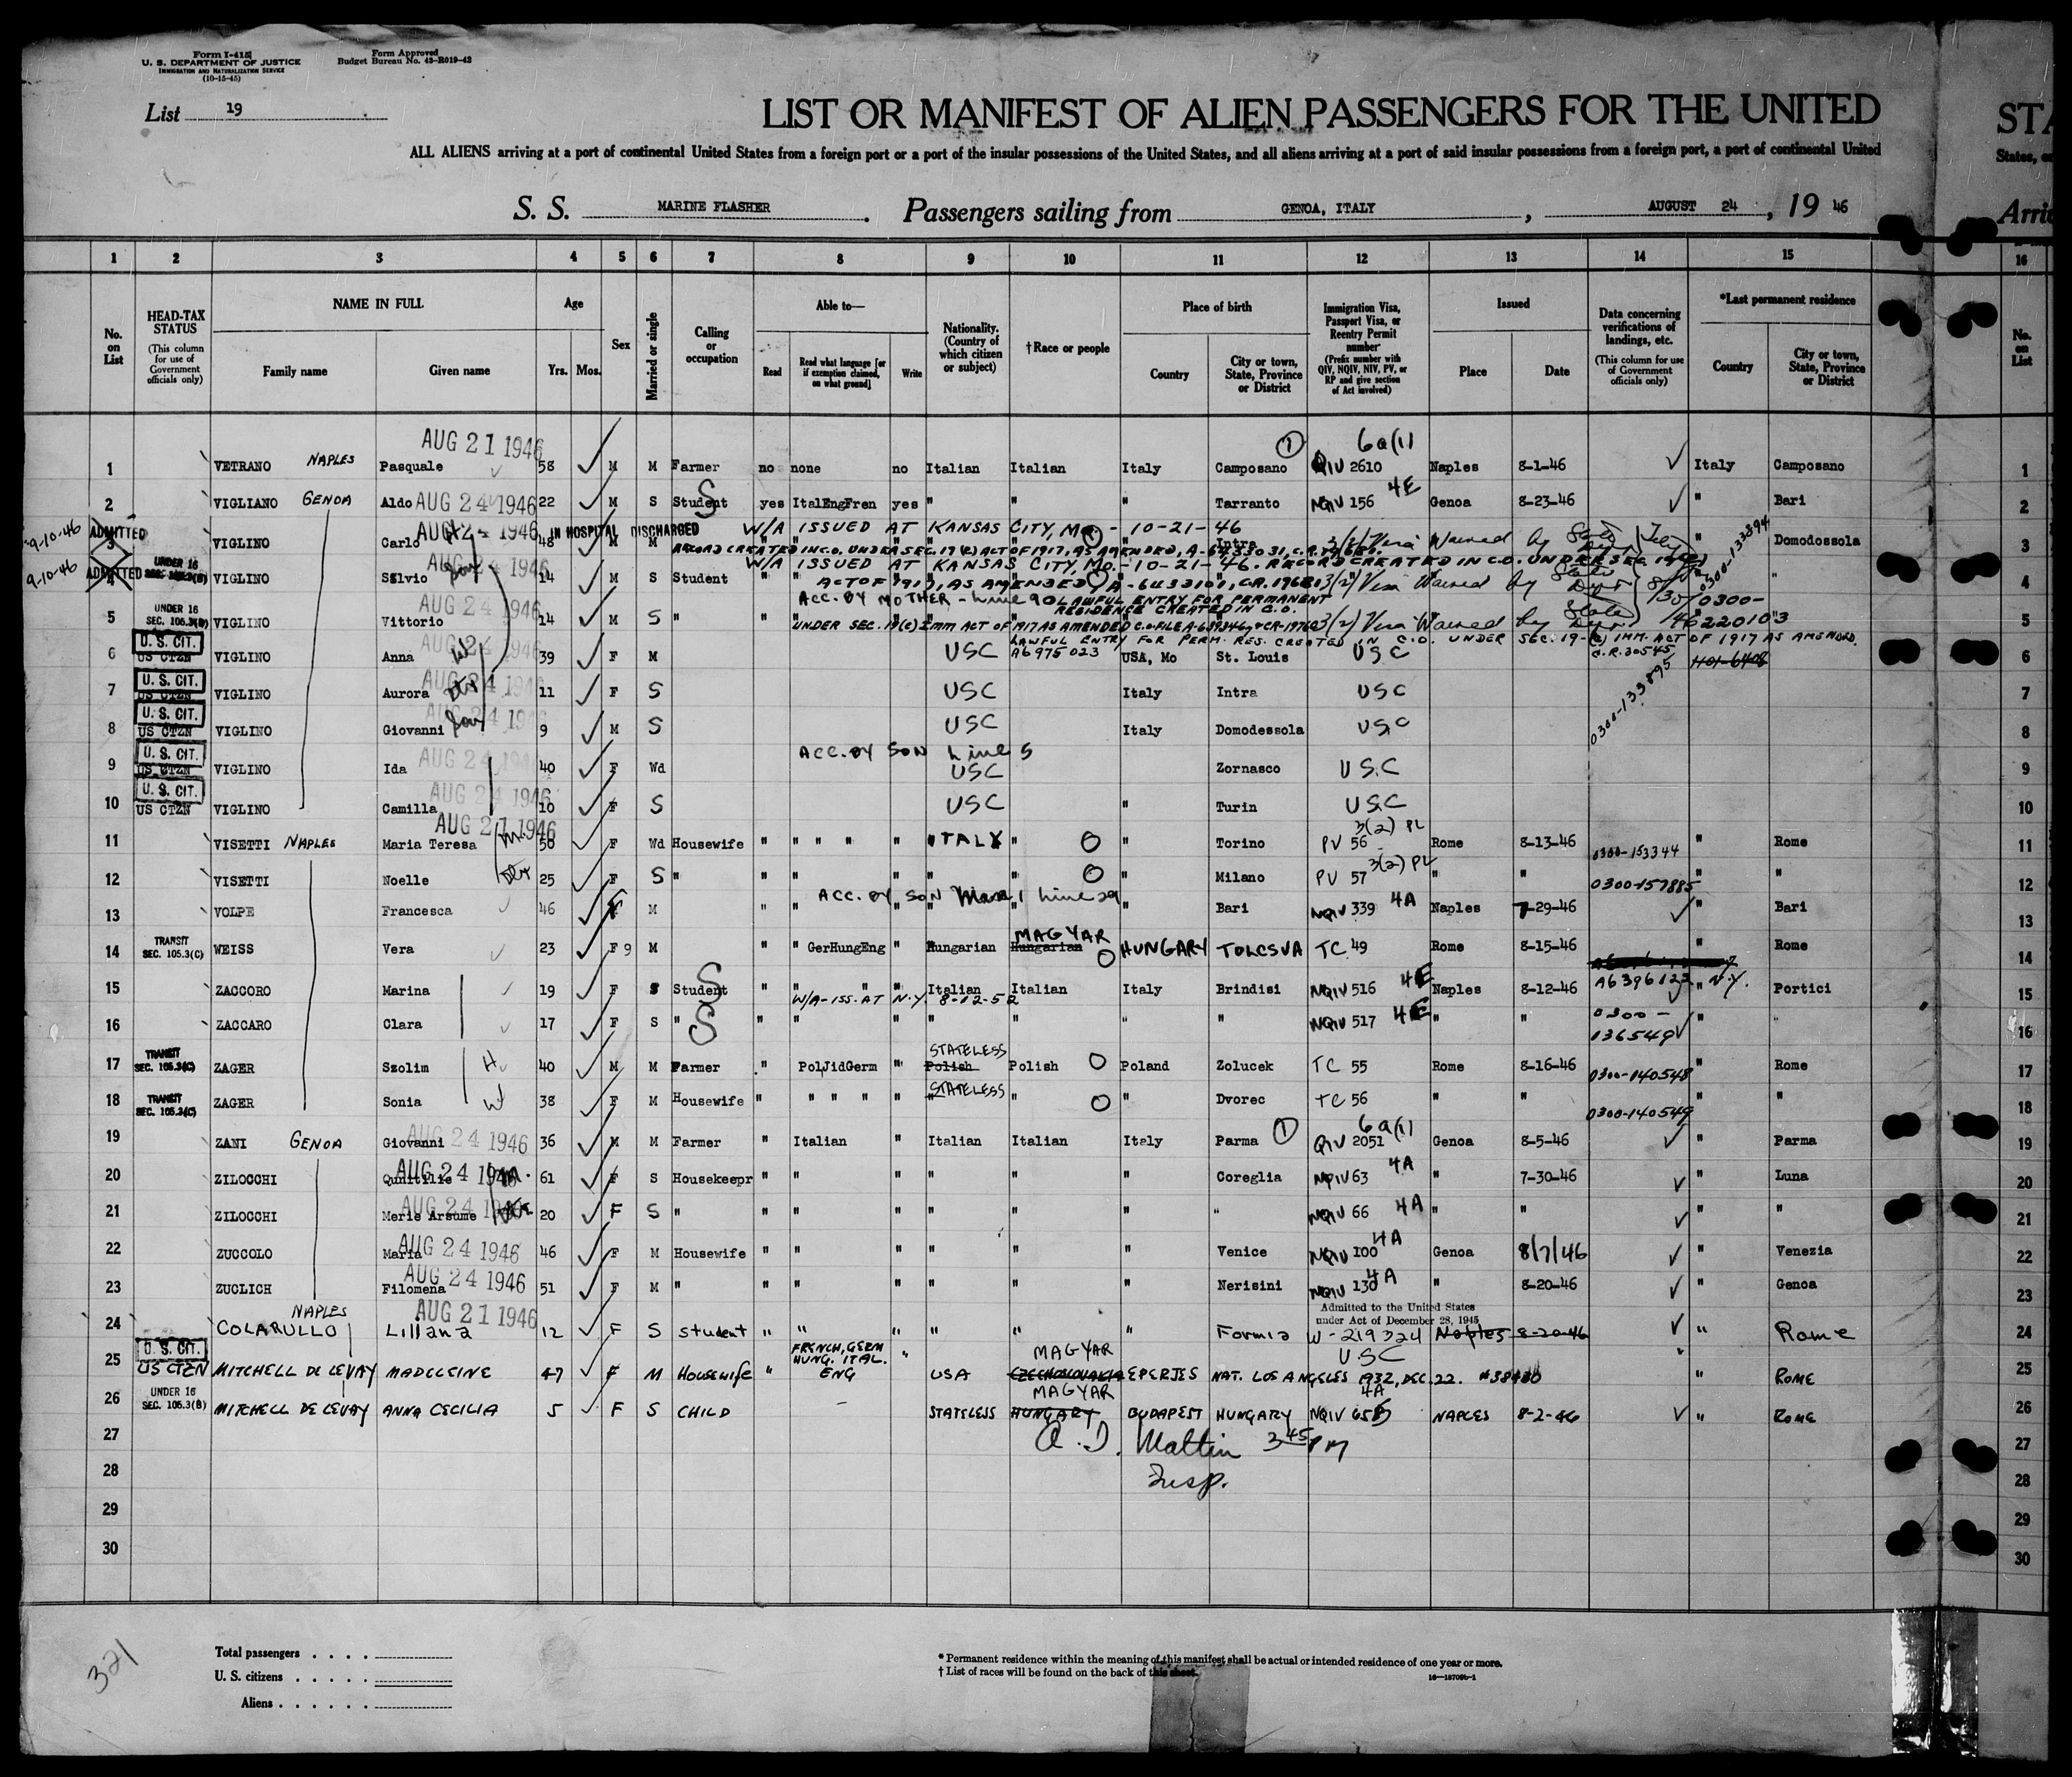 Form I-415
U. S. DEPARTMENT OF JUSTICE
IMMIGRATION AND NATURALIZATION SERVICE
(10-15-45)
Form Approved
Budget Bureau No. 43-R019-42
List 19
LIST OR MANIFEST OF ALIEN PASSENGERS FOR THE UNITED
STA
ALL ALIENS arriving at a port of continental United States from a foreign port or a port of the insular possessions of the United States, and all aliens arriving at a port of said insular possessions from a foreign port, a port of continental United
States, or
S. S. MARINE FLASHER . Passengers sailing from GENOA, ITALY , AUGUST 24 , 19 46
Arri
1 2 3 4 5 6 7 8 9 10 11 12 13 14 15 16
No. on List
HEAD-TAX STATUS (This column for use of Government officials only)
NAME IN FULL Family name Given name
Age Yrs. Mos.
Sex
Married or single
Calling or occupation
Able to— Read Read what language [or if exemption claimed, on what ground] Write
Nationality. (Country of which citizen or subject)
†Race or people
Place of birth Country City or town, State, Province or District
Immigration Visa, Passport Visa, or Reentry Permit number (Prefix number with QIV, NQIV, NIV, PV, or RP and give section of Act involved)
Issued Place Date
Data concerning verifications of landings, etc. (This column for use of Government officials only)
*Last permanent residence Country City or town, State, Province or District
No. on List
AUG 21 1946 1 6a(1)
1 VETRANO NAPLES Pasquale 58 M M Farmer no none no Italian Italian Italy Camposano QIV 2610 Naples 8-1-46 Italy Camposano 1
2 VIGLIANO GENOA Aldo AUG 24 1946 22 M S Student S yes ItalEngFren yes " " " Tarranto NQIV 156 4E Genoa 8-23-46 " Bari 2
9-10-46 ADMITTED AUG 24 1946 IN HOSPITAL DISCHARGED W/A ISSUED AT KANSAS CITY, MO - 10-21-46
3 VIGLINO Carlo 48 M M Intra 3(2) Visa Waived by State " Domodossola 3
RECORD CREATED IN C.O. UNDER SEC. 19 (c) ACT OF 1917, AS AMENDED, A-6433031, C.R.
0300-133894
9-10-46 ADMITTED UNDER 16 SEC. 105.3(B) AUG 24 1946 W/A ISSUED AT KANSAS CITY, MO.-10-21-46. RECORD CREATED IN C.O. UNDER SEC. 19(c)
4 VIGLINO Silvio Son 14 M S Student " ACT OF 1917, AS AMENDED, A-6433101, CR. 19681 3(2) Visa Waived by State " 4
ACC. BY MOTHER - Line 9 LAWFUL ENTRY FOR PERMANENT
RESIDENCE CREATED IN C.O.
UNDER 16 SEC. 105.3(B) AUG 24 1946
5 VIGLINO Vittorio 14 M S " " 3(2) Visa Waived by State 0300- 5
UNDER SEC. 19(c) IMM ACT OF 1917 AS AMENDED C.O. FILE
U. S. CIT. AUG 24 1946 LAWFUL ENTRY FOR PERM. RES. CREATED IN C.O. UNDER SEC. 19-(c) IMM. ACT OF 1917 AS AMENDED.
6 US CTZN VIGLINO Anna W 39 F M USC A6975023 USA, Mo St. Louis USC C.R. 30545 1101-6408 6
0300-133895
U. S. CIT. AUG 24 1946
7 US CTZN VIGLINO Aurora Dtr 11 F S USC Italy Intra USC 7
U. S. CIT. AUG 24 1946
8 US CTZN VIGLINO Giovanni Son 9 M S USC Italy Domodessola USC 8
U. S. CIT. AUG 24 1946 ACC. BY SON Line 5
9 US CTZN VIGLINO Ida 40 F Wd USC Zornasco USC 9
U. S. CIT. AUG 24 1946
10 US CTZN VIGLINO Camilla 10 F S USC " Turin USC 10
AUG 21 1946 3(2) PL
11 VISETTI NAPLES Maria Teresa M. 50 F Wd Housewife " " " " " ITALY " O " Torino PV 56 Rome 8-13-46 0300-153344 " Rome 11
12 VISETTI Noelle Dtr 25 F S " " " " " " O " Milano PV 57 3(2) PL " " 0300-157885 " " 12
ACC. BY SON Line 29
13 VOLPE Francesca 46 F M " " " " " " Bari NQIV 339 4A Naples 7-29-46 " Bari 13
14 TRANSIT SEC. 105.3(C) WEISS Vera 23 F 9 M " GerHungEng " Hungarian MAGYAR Hungarian O HUNGARY TOLCSVA TC 49 Rome 8-15-46 " Rome 14
15 ZACCORO Marina 19 F S Student S " " " " Italian Italian Italy Brindisi NQIV 516 4E Naples 8-12-46 A6396122 N.Y. " Portici 15
W/A-ISS. AT N.Y. 8-12-52
16 ZACCARO Clara 17 F S " S " " " " " " " NQIV 517 4E " " 0300-136549 " " 16
17 TRANSIT SEC. 105.3(C) ZAGER Szolim H 40 M M Farmer " PolJidGerm " STATELESS Polish Polish O Poland Zolucek TC 55 Rome 8-16-46 0300-140548 " Rome 17
18 TRANSIT SEC. 105.3(C) ZAGER Sonia W 38 F M Housewife " " " " " " STATELESS " " O " Dvorec TC 56 " " 0300-140549 " " 18
19 ZANI GENOA Giovanni AUG 24 1946 36 M M Farmer " Italian " Italian Italian Italy Parma 1 QIV 2051 6a(1) Genoa 8-5-46 " Parma 19
20 ZILOCCHI Quntilie AUG 24 1946 M. 61 F S Housekeepr " " " " " " Coreglia NQIV 63 4A " 7-30-46 " Luna 20
21 ZILOCCHI Merie Arsume AUG 24 1946 Dtr 20 F S " " " " " " " " NQIV 66 4A " " " " 21
22 ZUCCOLO Maria AUG 24 1946 46 F M Housewife " " " " " " Venice NQIV 100 4A Genoa 8/7/46 " Venezia 22
23 ZUCLICH Filomena AUG 24 1946 51 F M " " " " " " " Nerisini NQIV 130 4A " 8-20-46 " Genoa 23
NAPLES AUG 21 1946 Admitted to the United States
under Act of December 28, 1945
24 COLARULLO Liliana 12 F S student " " " " " " Formia W-219324 Naples 8-20-46 " Rome 24
U. S. CIT. FRENCH, GERM HUNG. ITAL. MAGYAR USC
25 US CTZN MITCHELL DE LEVAY MADELEINE 47 F M Housewife " ENG " USA CZECHOSLOVAKIA EPERJES NAT. LOS ANGELES 1932, DEC. 22. " ROME 25
MAGYAR 4A
26 UNDER 16 SEC. 105.3(B) MITCHELL DE LEVAY ANNA CECILIA 5 F S CHILD - STATELESS HUNGARY BUDAPEST HUNGARY NQIV NAPLES 8-2-46 " ROME 26
27 A. D. Mattin 3 45 PM 27
28 Insp. 28
29 29
30 30
321
Total passengers . . . .
U. S. citizens . . . . .
Aliens . . . . . .
* Permanent residence within the meaning of this manifest shall be actual or intended residence of one year or more.
† List of races will be found on the back of this sheet.
16—18709b-1